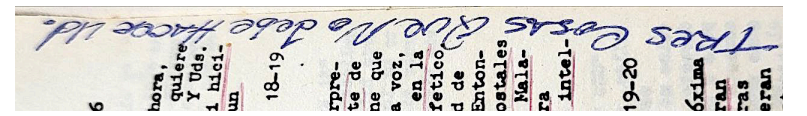 TRES COSAS QUE NO debe HACER Ud.
6
hora,
quiere
Y Uds.
i hici-
un
18-19
rpre-
te de
ne que
a voz,
en la
fetico
d de
Enton-
ostales
Mala-
ra
intel-
19-20
óxima
ran
ras
eran